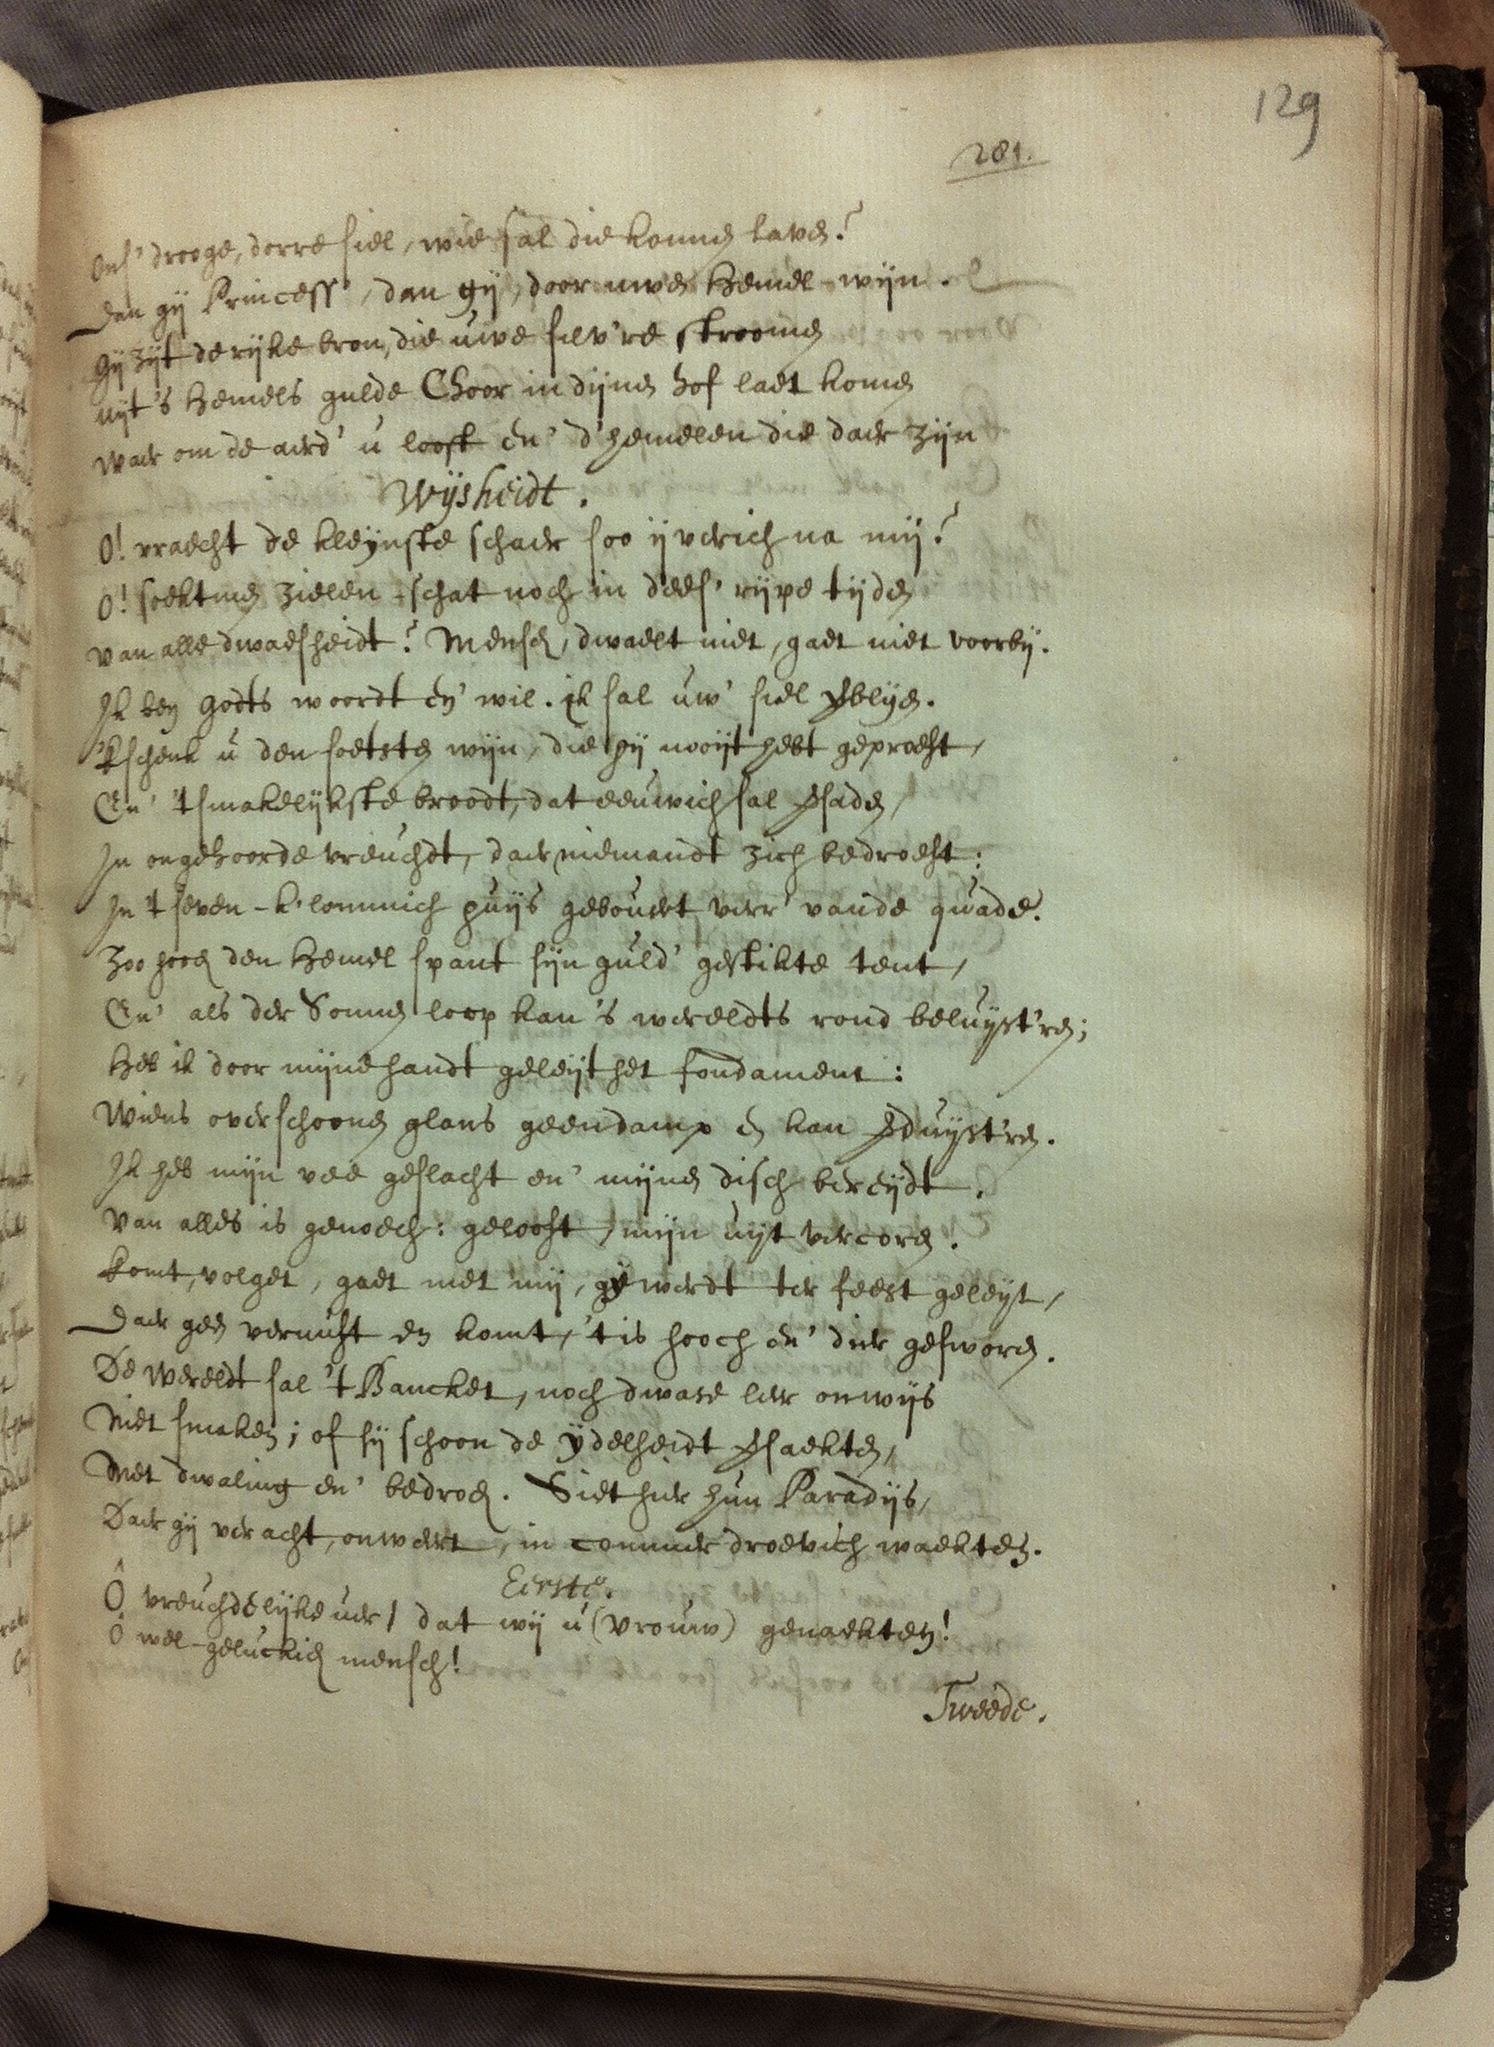 129
281.
Ons' drooge, dorre siel, wie sal die konnen laven?
Dan gij Princess', dan gij, door uwen Hemel-wijn.
Gij zijt de rijke bron, die uwe silv're stroomen
uijt 's Hemels gulde Choor in dijnen hof laet komen
waer om de aerd' u looft en' d'hemelen die daer zijn
Wijsheidt.
O! vraecht de kleijnste schaer soo ijverich na mij?
O! soektmen zielen-schat noch in dees' rijpe tijden
van alle dwaesheidt? Mensch, dwaelt niet, gaet niet voorbij.
Ik ben Godts woordt en' wil. ik sal uw' siel verblijen.
'Kschenk u den soetsten wijn, die gij nooijt hebt geproeft,
En' 't smakelijkste broodt, dat eeuwich sal versaden,
In ongehoorde vreuchdt, daer niemandt zich bedroeft:
In 't seven-k'lommich huijs gebouwt verr' vande quade.
Zoo hooch den Hemel spant sijn guld' gestikte tent,
En' als der Sonnen loop kan 's wereldts rond beluijst'ren;
Heb ik door mijne handt geleijt het fondament:
Wiens overschoonen glans geendamp en kan verduijst'ren.
Ik heb mijn vee geslacht en' mijnen disch bereijdt.
Van alles is genoech: gelooft, mijn uijt vercoren.
Komt, volget, gaet met mij, gij werdt ter feest geleijt,
Daer geen vernuft en komt, 't is hooch en' dier geswooren.
De wereldt sal 't Bancket, noch dwase leer onwijs
Niet smaken; of sij schoon de ijdelheidt versaekten,
Met dwaling en' bedroch. Siet hier hun Paradijs,
Daer gij veracht, onweert, in commer droevich waekten.
Eerste.
Ô vreuchdelijke uer, dat wij u (Vrouw) genaekten!
Ô wel-geluckich mensch!
Tweede.